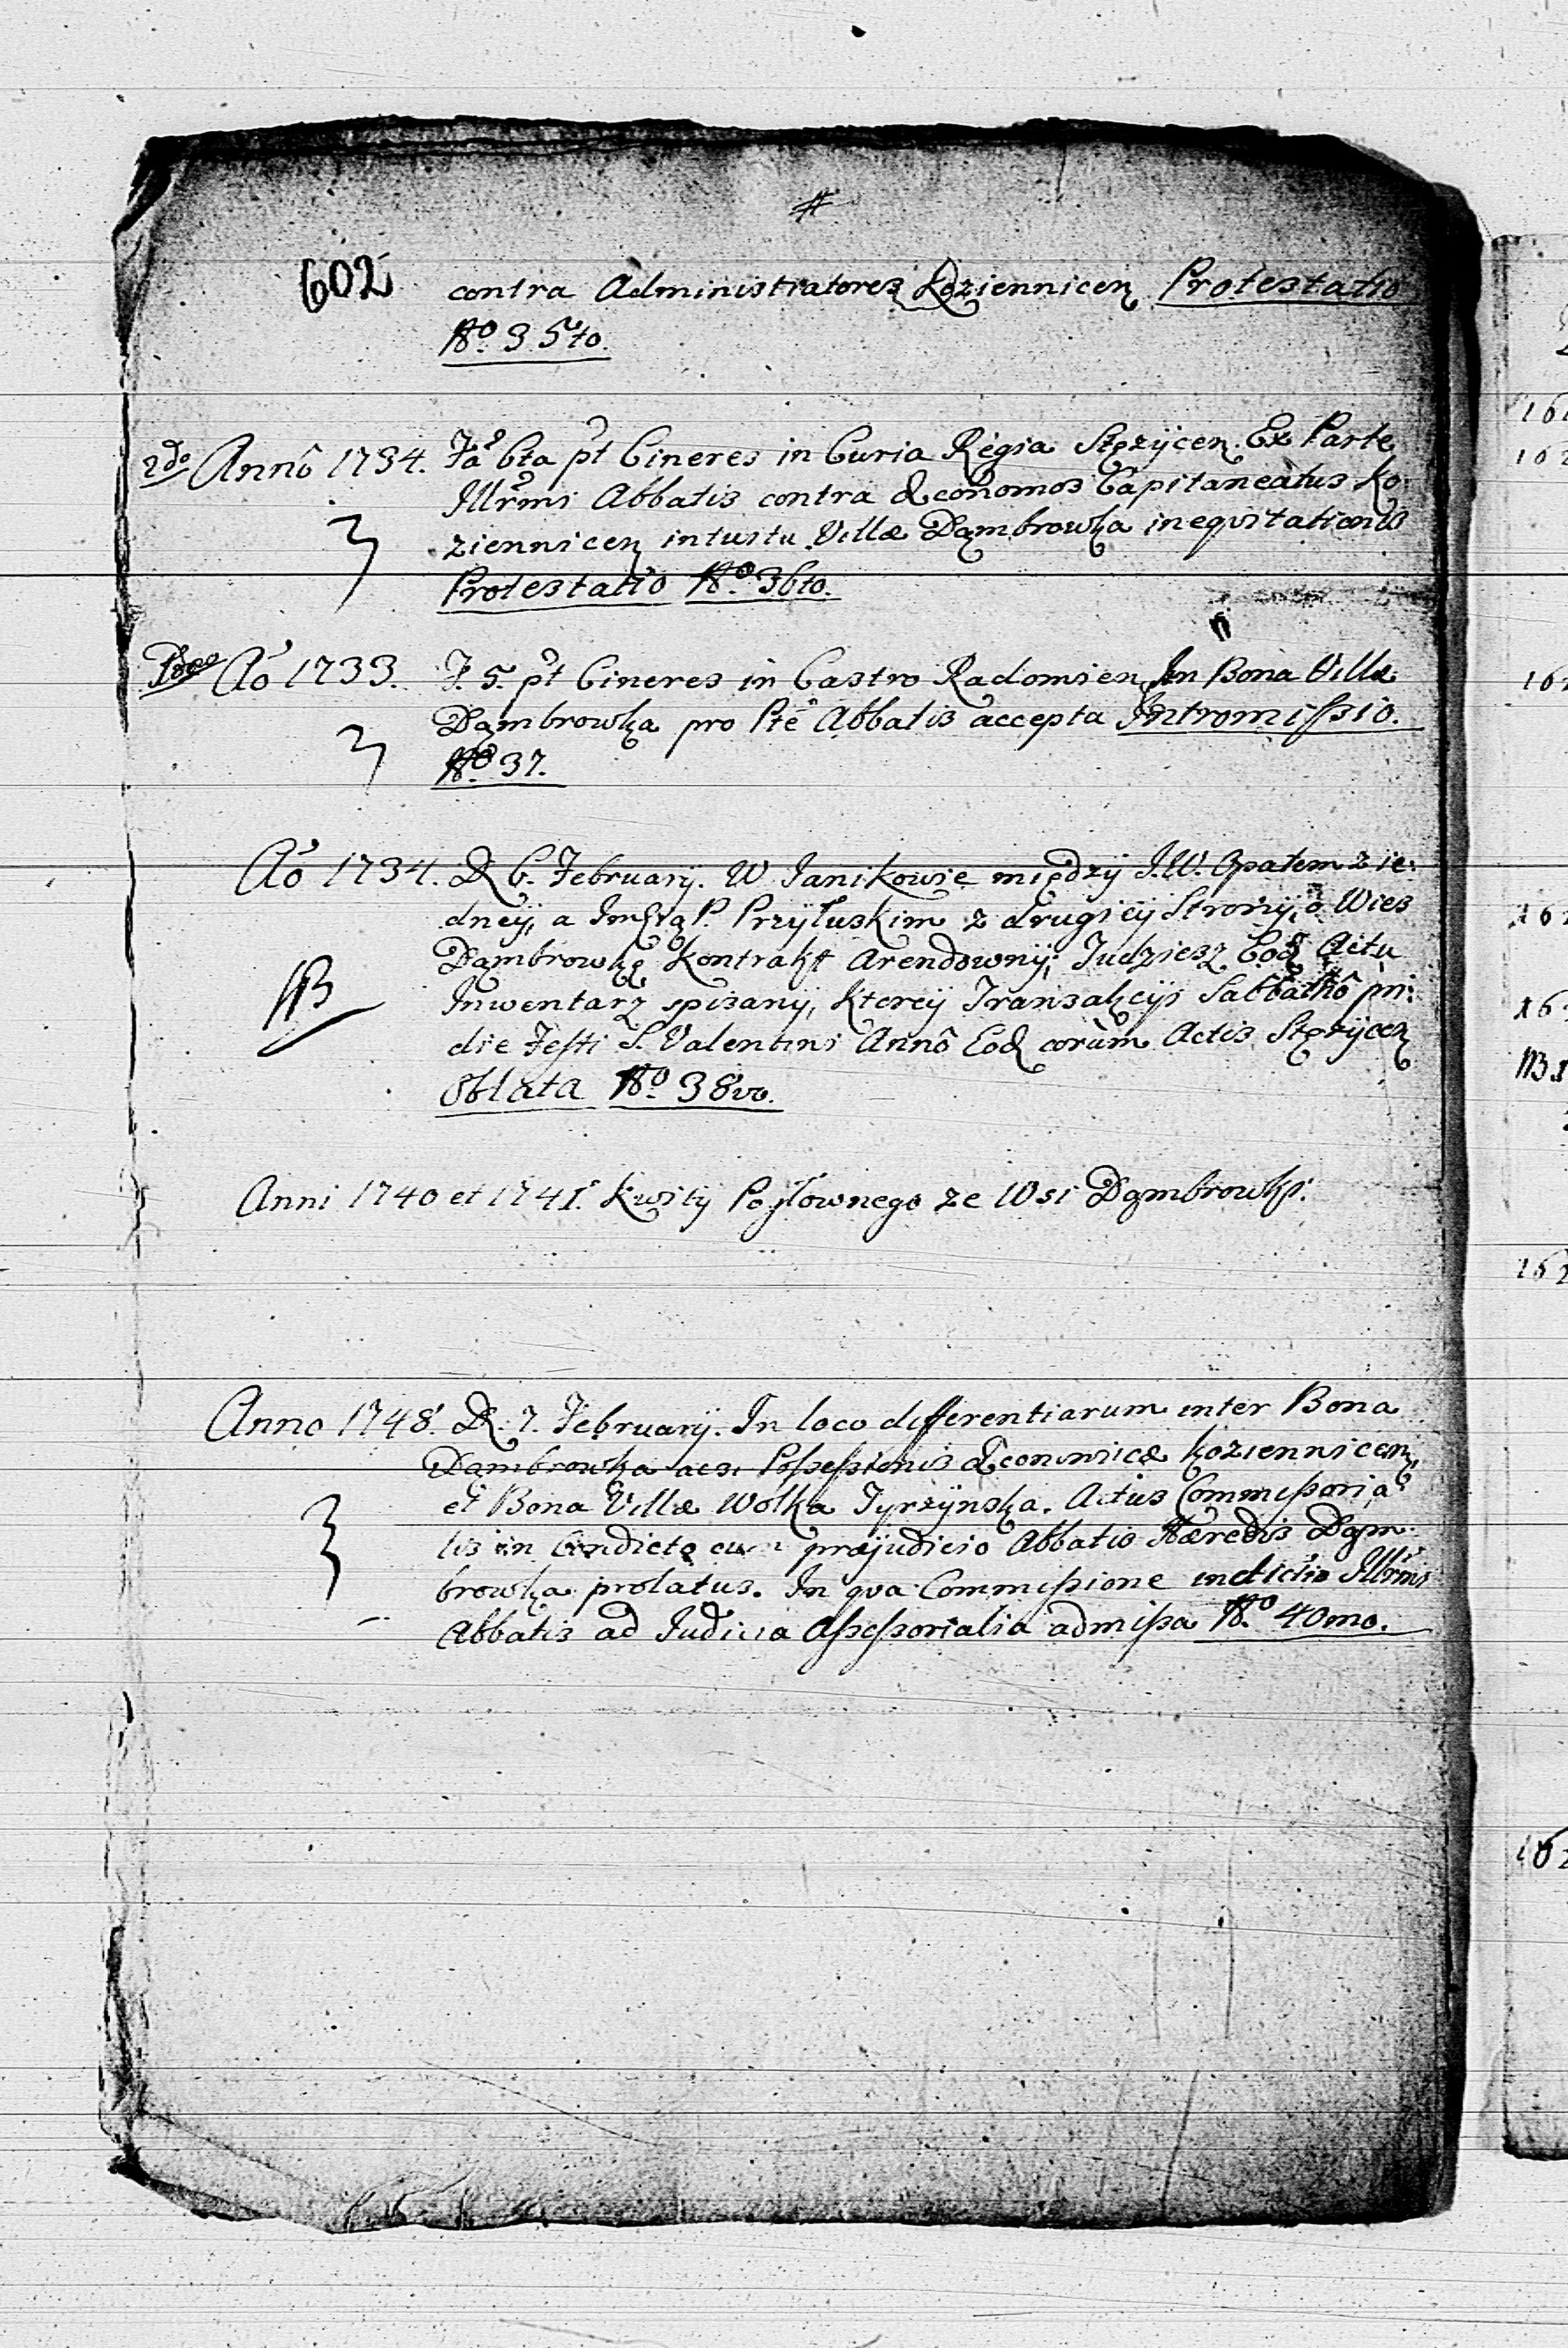 #
602 contra Administratores Kozienniceņ Protestatio
No. 35to.
2do Annô 1734. Fa 6ta pt Cineres in Curia Regia Stężyceņ. Ex Parte
Illrmi Abbatis contra Œconomos Capitaneatus Ko-
zienniceņ intuitu Villæ Dąmbrowka inequitationis
Protestatio No. 36to.
Aô 1733. F. 5. pt Cineres in Castro Radomien In Bona Villæ
Dąmbrowka pro Pte Abbatis accepta Intromissio.
No. 37.
Aô 1734. D. 6. February. W Janikowie między J.W. Opatem z ie-
dney, a Imścią P. Przyłuskim z drugiey Strony, o Wieś
Dąmbrowkę Kontrakt Arendowny; Tudziesz Eod Actu
NB Inwentarz spisany, ktorey Transakcyi Sabbathô pri-
die Festi S. Valentini Annô Eod coram Actis Stężyceņ
Oblata No. 38vo.
Anni 1740 et 1741. Kwity Pogłownego ze Wsi Dąmbrowki.
Anno 1748. D. 7. February. In loco differentiarum inter Bona
Dąmbrowka acsi Possessionis Œconomicæ Kozienniceņ,
et Bona Villæ Wolka Tyrzynska. Actus Commissoria-
lis in Condicto cum præjudicio Abbatis Hæredis Dąm-
browka prolatus. In qva Commissione Illrmi
Abbatis ad Judicia Assessorialia admissa No. 40mo.